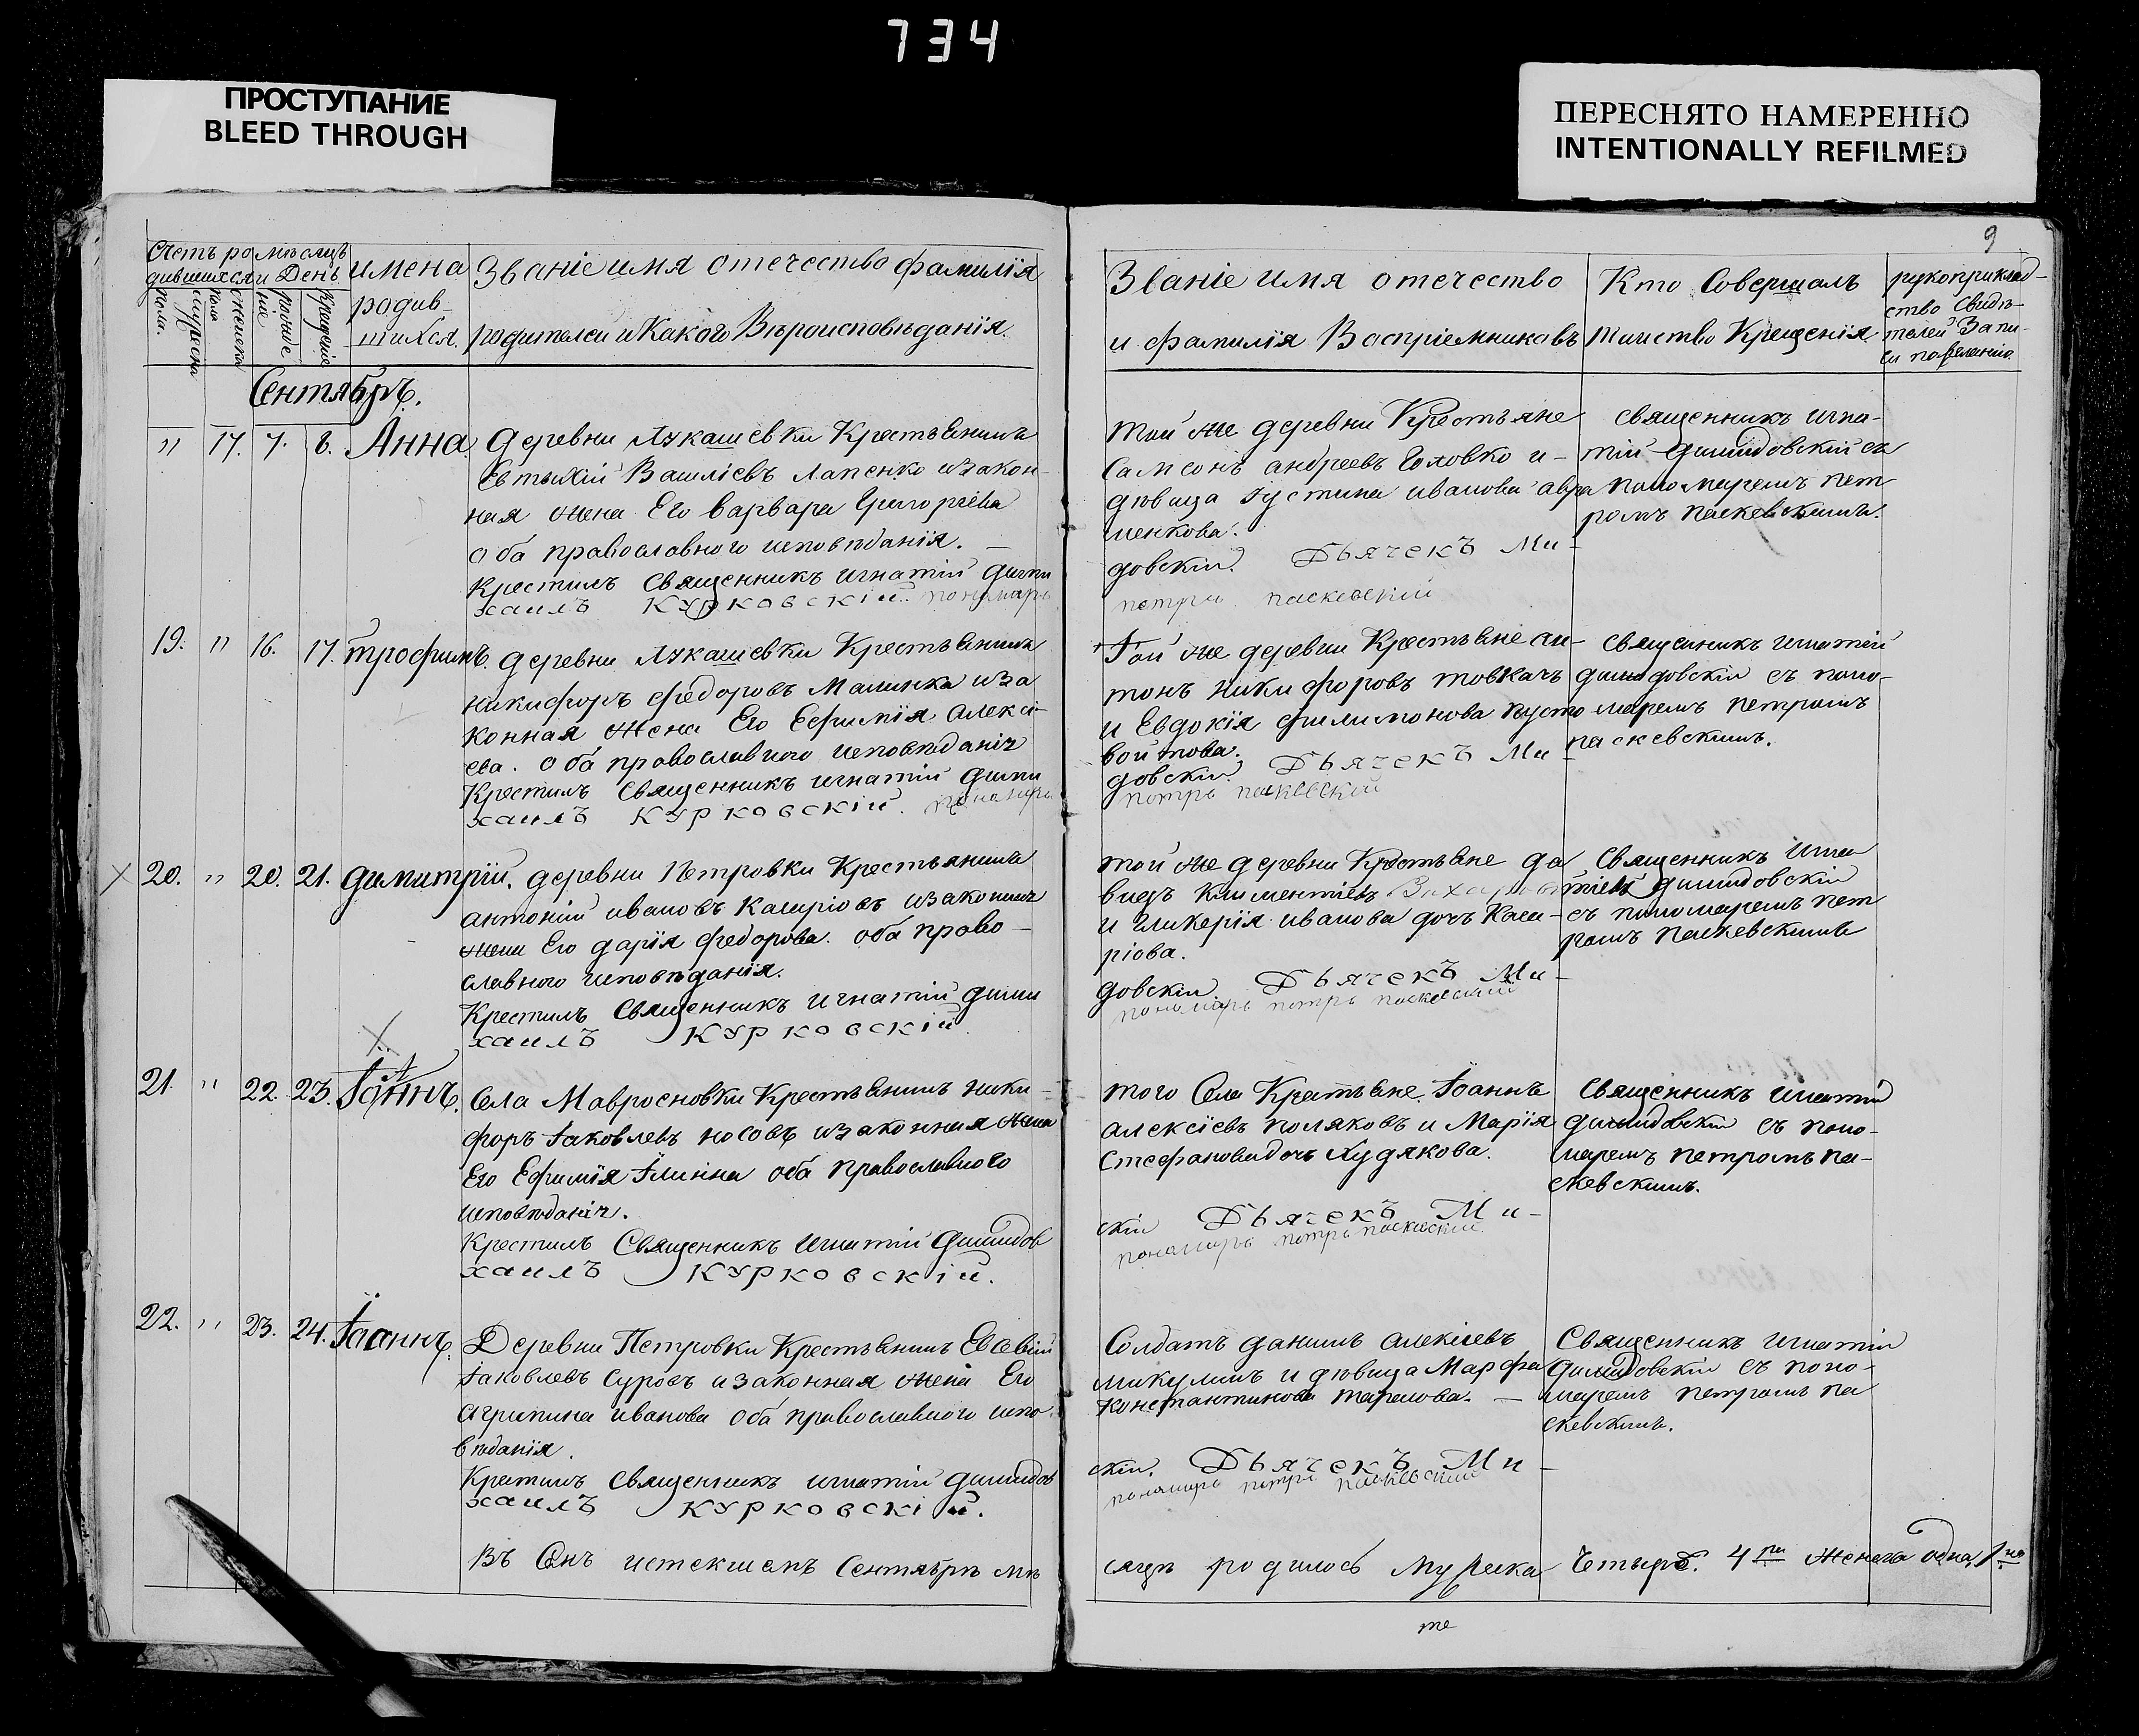 734
ПРОСТУПАНИЕ
BLEED THROUGH
ПЕРЕСНЯТО НАМЕРЕННО
INTENTIONALLY REFILMED
9
Счетъ ро
дившихся
мѣсяцъ
и День
имена
родив-
шихся.
Званіе имя отечество фамилія
родителей и Какого Вѣроисповѣданія.
Званіе имя отечество
и фамилія Воспріемниковъ
Кто Совершалъ
таинство Крещенія
рукоприклад-
ство Свидѣ-
телей Запи-
си по желанію.
Сентябрь.
" 17. 7. 8. Анна
Деревни Лукашевки Крестьянинъ
Евтихій Василіевъ Лапенко и закон-
ная жена Его Варвара Григоріева
оба православного исповѣданія. —
Крестилъ Священникъ Игнатій Дими
хаилъ Курковскій. пономарь
той же деревни Крестьяне
Самсонъ андреевъ Головко и-
дѣвица Іустина иванова авра
менкова.
довскій. Дьячекъ Ми-
петръ паскевскій
священникъ Игна-
тій Димидовскій съ
пономаремъ пет
ромъ паскевскимъ.
19. " 16. 17. трофимъ.
деревни Лукашевки Крестьянинъ
никифоръ федоровъ Малинка и за
конная жена Его Ефимія Алексі-
ева. оба православного исповѣданія
Крестилъ Священникъ игнатій Дими
хаилъ Курковскій. пономарь
Той же деревни Крестьяне ан-
тонъ никифоровъ товкачъ
и Евдокія филимонова пусто
войтова.
довскій. Дьячекъ Ми-
петръ паскевскій
священникъ Игнатій
Димидовскій съ поно-
маремъ петромъ
паскевскимъ.
20. " 20. 21. димитрій.
деревни Петровки Крестьянинъ
антоній ивановъ Касиріовъ и законная
жена Его дарія федорова. оба право-
славного исповѣданія.
Крестилъ Священникъ игнатій Дими
хаилъ Курковскій
той же деревни Крестьяне да
видъ Климентіевъ
и гликерія иванова дочь Каси-
ріова.
довскій Дьячекъ Ми-
пономарь петръ паскевскій
Священникъ Игна
тій Димидовскій
съ пономаремъ пет
ромъ паскевскимъ
21. " 22. 23. Іоаннъ.
Села Мавросновки Крестьянинъ ники-
форъ Іаковлевъ носовъ и законная жена
Его Ефимія Ілиінна оба православного
исповѣданія.
Крестилъ Священникъ Игнатій Димидов
хаилъ Курковскій.
того Села Крестьяне Іоаннъ
алексіевъ поляковъ и Марія
Стефанова дочь Худякова.
скій Дьячекъ Ми-
пономарь петръ паскевскій
Священникъ Игнатій
Димидовскій съ поно-
маремъ петромъ па-
скевскимъ.
22. " 23. 24. Іоаннъ.
Деревни Петровки Крестьянинъ Евсевій
Іаковлевъ Суровъ и законная жена Его
Агрипина иванова оба православного испо-
вѣданія.
Крестилъ Священникъ игнатій Димидов
хаилъ Курковскій.
Солдатъ данилъ алексіевъ
микулинъ и дѣвица Марфа
Константинова тарасова. —
скій. Дьячекъ Ми-
пономарь петръ паскевскій
Священникъ Игнатій
Димидовскій съ поно-
маремъ петромъ па
скевскимъ.
Въ Семъ истекшемъ Сентябрѣ мѣ
сяцѣ родилось мужеска Четырѣ. 4ри Женска одна 1на
те